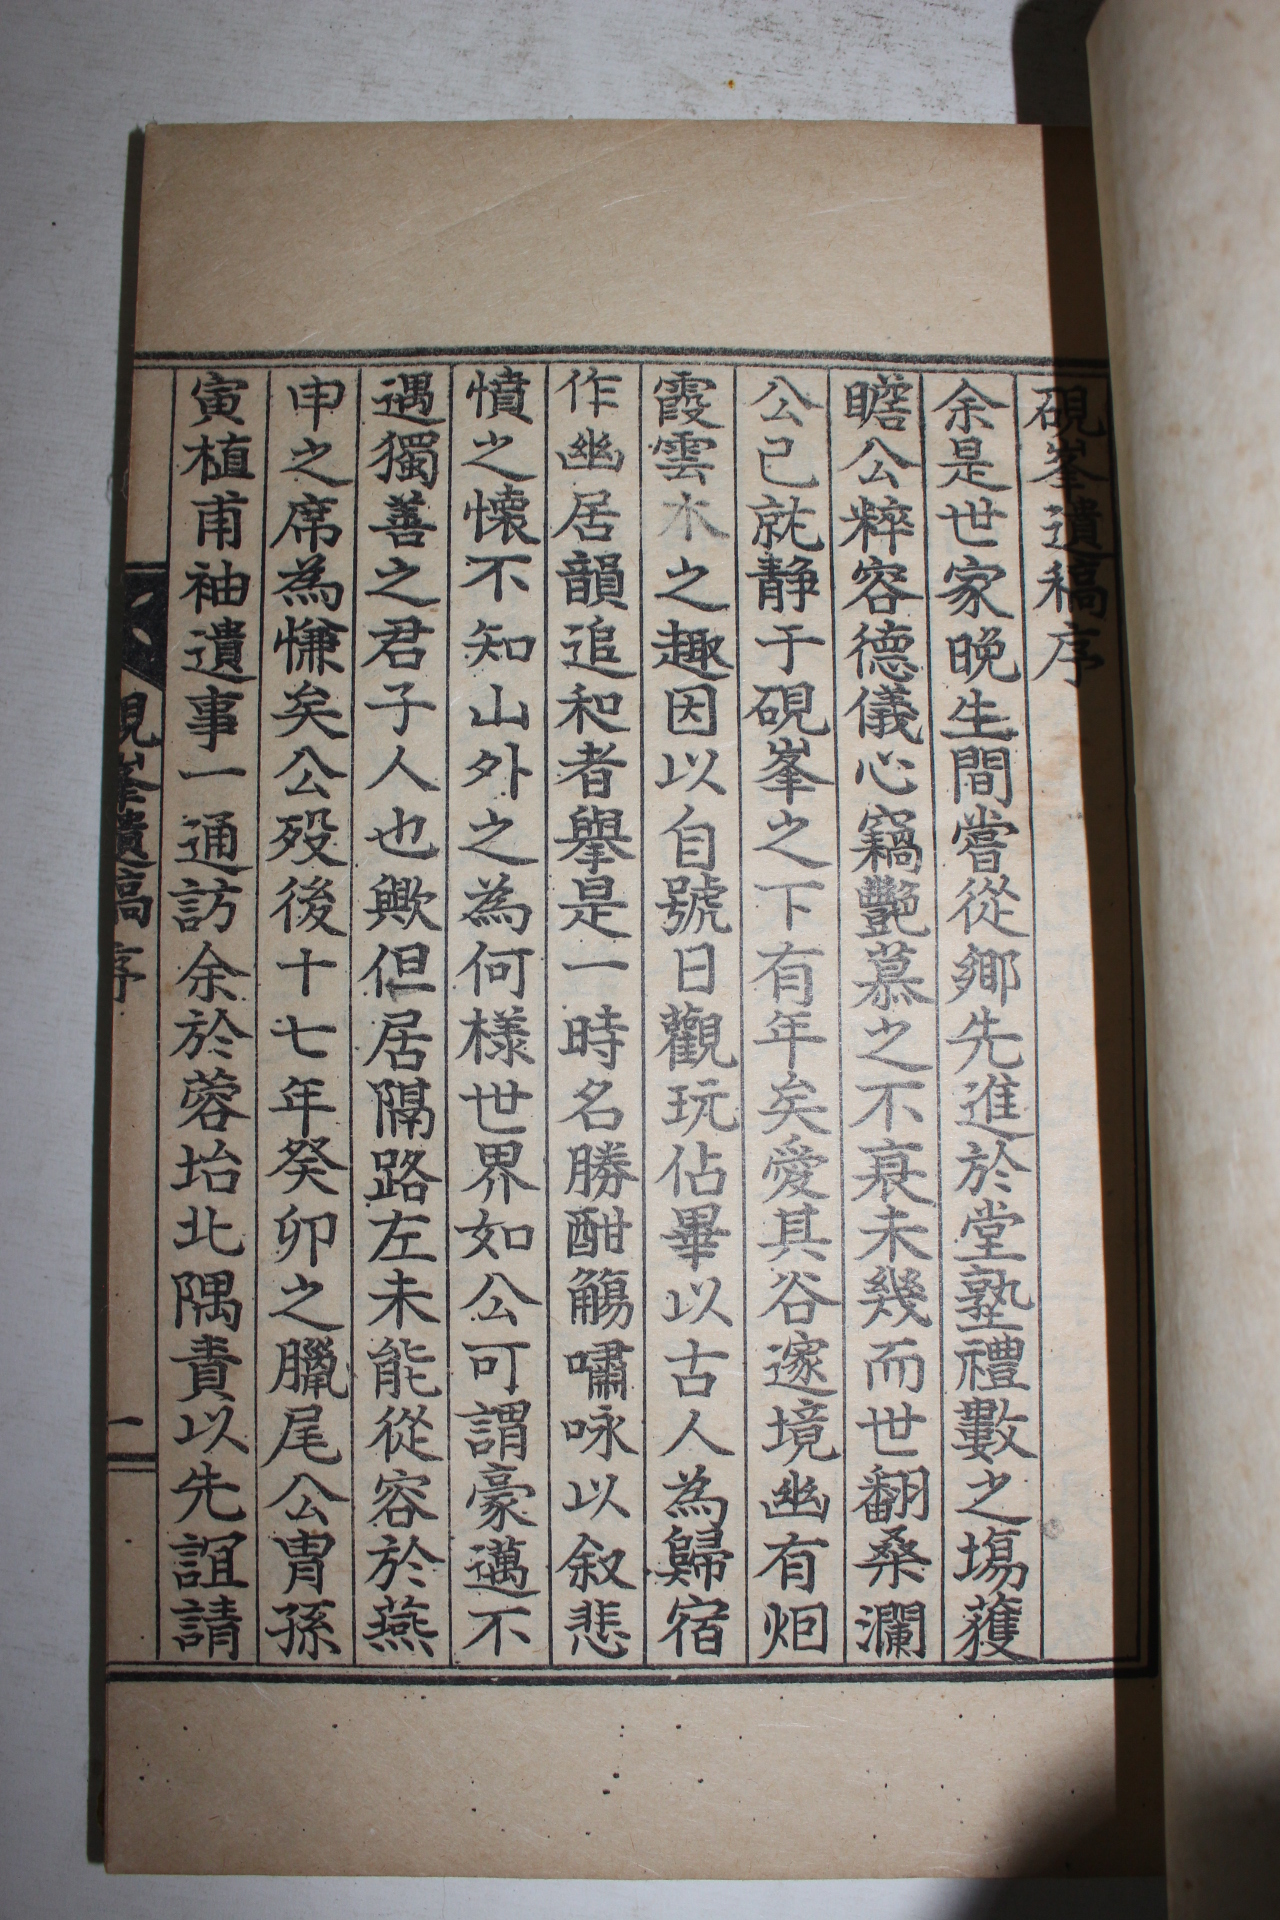 硯峯遺稿序
余是世家晩生間嘗從鄉先進於堂塾禮數之塲獲
瞻公粹容德儀心竊艶慕之不衰未幾而世翻桑瀾
公已就静于硯峯之下有年矣愛其谷邃境幽有烟
霞雲水之趣因以自號日觀玩佔畢以古人為歸宿
作幽居韻追和者擧是一時名勝酣觴嘯咏以叙悲
憤之懷不知山外之為何樣世界如公可謂豪邁不
遇獨善之君子人也歟但居隔路左未能從容於燕
申之席為慊矣公殁後十七年癸卯之臘尾公胄孫
寅植甫袖遺事一通訪余於蓉坮北隅責以先誼請
硯峯遺稿序
一